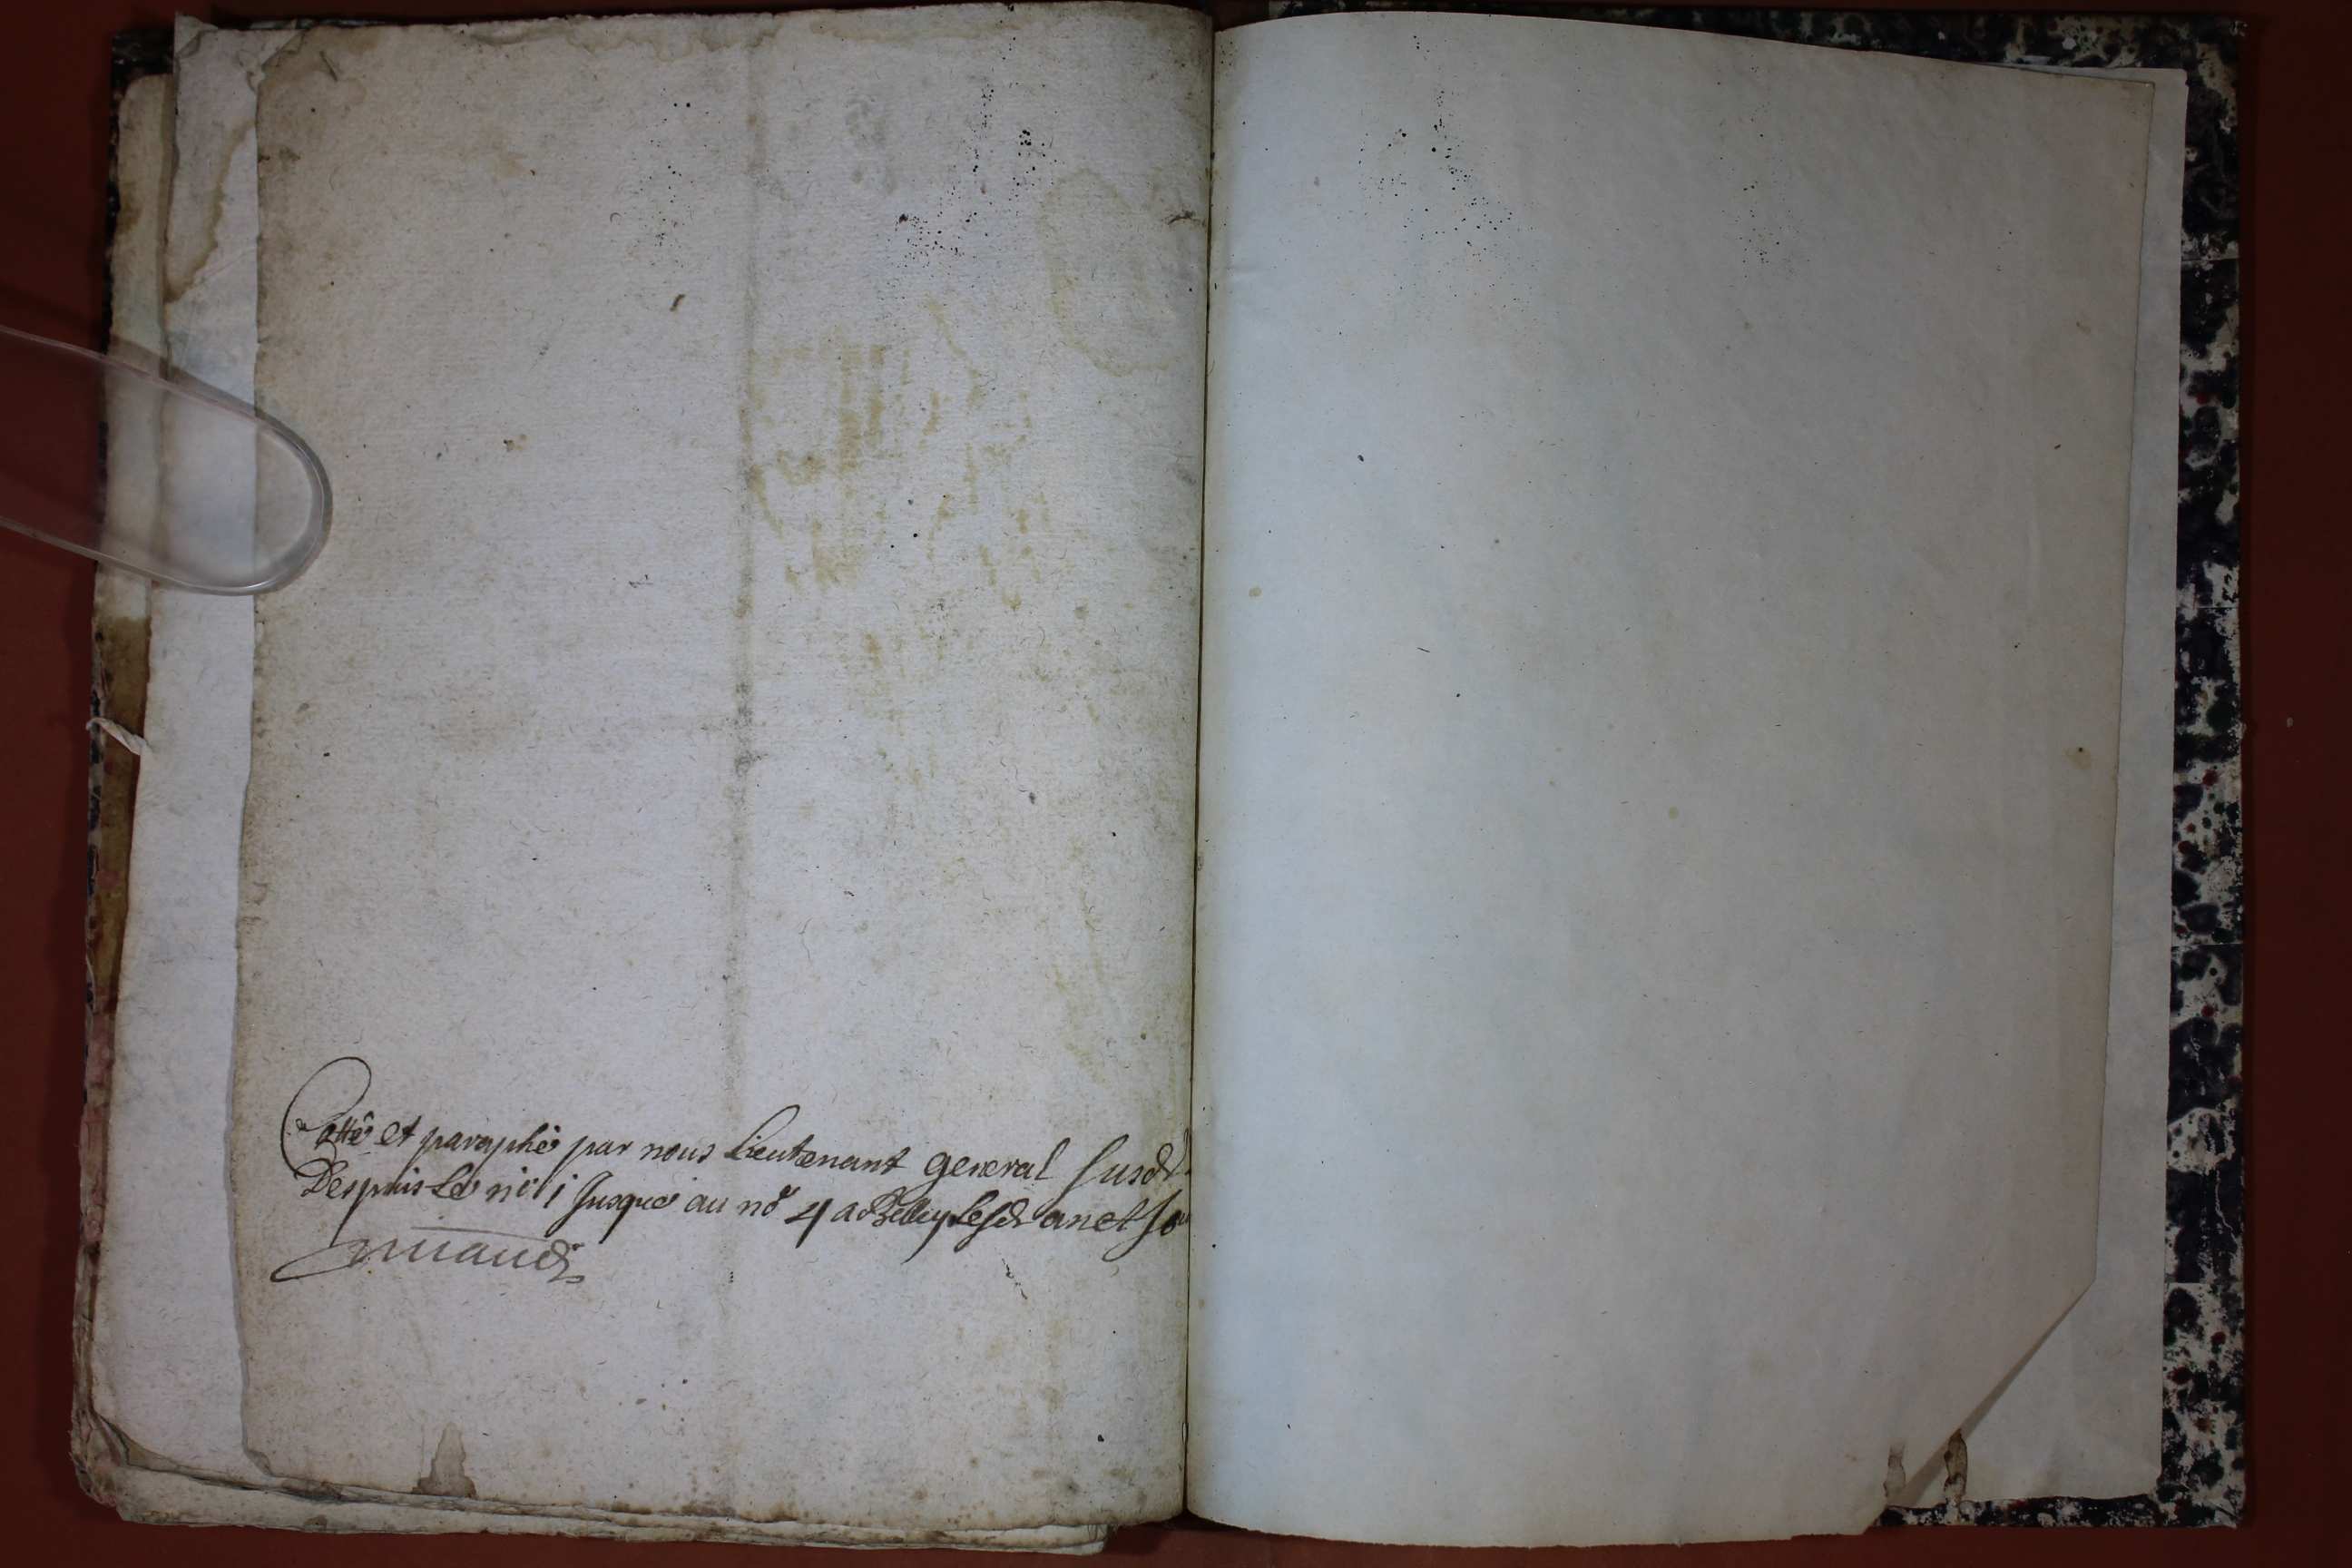 Cotté et paraphé par nous Lieutenant general susdt
Despuis Le no 1 Jusque au no 4 a Belley Lesd an et Jo